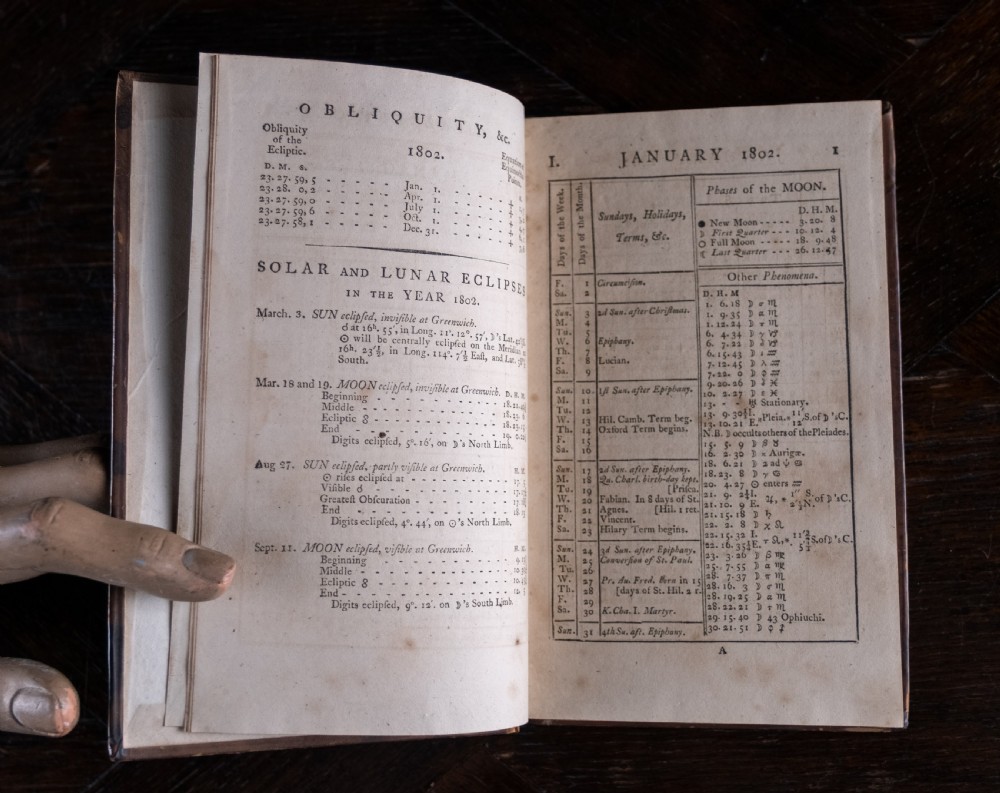 OBLIQUITY, &c.
Obliquity
of the
Ecliptic.
1802.
D. M. s.
23. 27. 59, 5 Jan. 1.
23. 28. 0, 2 Apr. 1.
23. 27. 59, 0 July 1.
23. 27. 59, 6 Oct. 1.
23. 27. 58, 1 Dec. 31.
SOLAR AND LUNAR ECLIPSES
IN THE YEAR 1802.
March. 3. SUN eclipſed, inviſible at Greenwich.
☌ at 16ʰ. 55′, in Long. 11ˢ. 12°. 57′, ☽'s Lat.
☉ will be centrally eclipſed on the Meridian
16ʰ. 23′½, in Long. 114°. 7′½ Eaſt, and Lat.
South.
Mar. 18 and 19. MOON eclipſed, inviſible at Greenwich. D. H. M.
Beginning
Middle
Ecliptic ☍
End
Digits eclipſed, 5°. 16′, on ☽'s North Limb.
Aug 27. SUN eclipſed, partly viſible at Greenwich.
☉ riſes eclipſed at
Viſible ☌
Greateſt Obſcuration
End
Digits eclipſed, 4°. 44′, on ☉'s North Limb.
Sept. 11. MOON eclipſed, viſible at Greenwich.
Beginning
Middle
Ecliptic ☍
End
Digits eclipſed, 9°. 12′. on ☽'s South Limb.
I. JANUARY 1802. 1
Days of the Week.
Days of the Month.
Sundays, Holidays,
Terms, &c.
F. 1 Circumciſion.
Sa. 2
Sun. 3 2d Sun. after Chriſtmas.
M. 4
Tu. 5
W. 6 Epiphany.
Th. 7
F. 8 Lucian.
Sa. 9
Sun. 10 1ſt Sun. after Epiphany.
M. 11
Tu. 12
W. 13 Hil. Camb. Term beg.
Th. 14 Oxford Term begins.
F. 15
Sa. 16
Sun. 17 2d Sun. after Epiphany.
M. 18 Qu. Charl. birth-day kept.
Tu. 19 [Priſca.
W. 20 Fabian. In 8 days of St.
Th. 21 Agnes. [Hil. 1 ret.
F. 22 Vincent.
Sa. 23 Hilary Term begins.
Sun. 24 3d Sun. after Epiphany.
M. 25 Converſion of St. Paul.
Tu. 26
W. 27 Pr. Au. Fred. born in 15
Th. 28 [days of St. Hil. 2 r.
F. 29
Sa. 30 K. Cha. I. Martyr.
Sun. 31 4th Su. aft. Epiphany.
Phaſes of the MOON.
D. H. M.
● New Moon 3. 20. 8
☽ Firſt Quarter 10. 12. 4
○ Full Moon 18. 9. 48
☾ Laſt Quarter 26. 12. 47
Other Phenomena.
D. H. M
1. 6. 18 ☽ ♏
1. 9. 35 ☽ α ♏
1. 12. 24 ☽ τ ♏
6. 4. 34 ☽ γ ♑
6. 7. 22 ☽ ♑
6. 15. 43 ☽ ι ♒
7. 12. 45 ☽ λ ♒
7. 22. 0 ♒
9. 20. 26 ☽ ♓
10. 2. 27 ☽ ♓
13. ♅ Stationary.
13. 9. 30 I. Pleia. S. of ☽'s C.
13. 10. 21 E.
N.B. ☽ occults others of the Pleiades.
15. 5. 9 ☽ β ♉
16. 2. 30 ☽ Aurigæ.
18. 6. 21 ☽ 2 ad ♋
18. 23. 8 ☽ γ ♋
20. 4. 27 ☉ enters ♒
21. 9. I. ♃, S. of ☽'s C.
21. 10. 9 E. N.
21. 15. 18 ☽ ♄
22. 2. 8 ☽ χ ♌
22. 15. 32 I. S. of ☽'s C.
22. 16. 35 E.
23. 3. 26 ☽ β ♍
25. 7. 55 ☽ α ♍
28. 7. 37 ☽ π ♏
28. 16. 3 ☽ ♏
28. 19. 25 ☽ α ♏
28. 22. 21 ☽ τ ♏
29. 15. 40 ☽ 43 Ophiuchi.
30. 21. 51 ☽
A